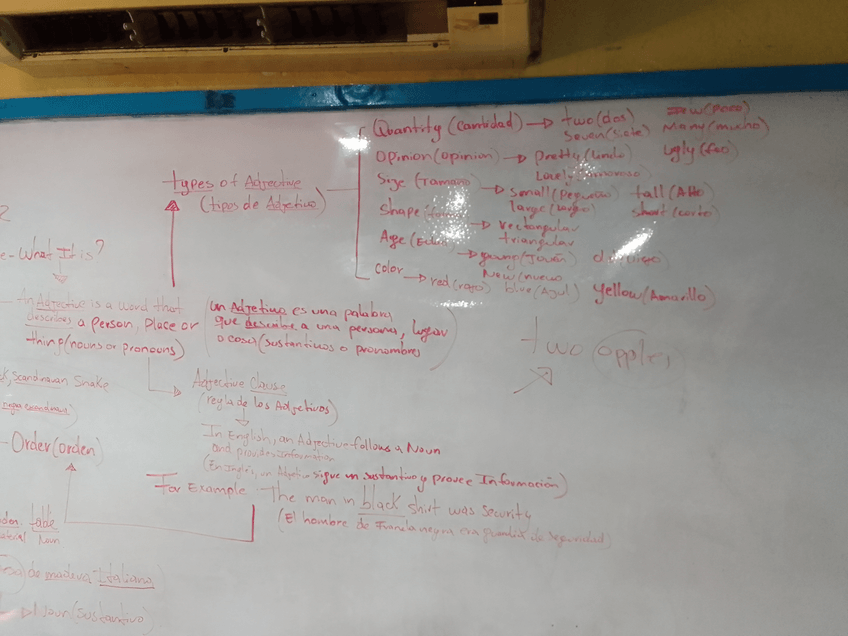 Quantity (Cantidad) → two (dos)
seven (siete)
many (mucho)
Opinion (opinion) → pretty (lindo
ugly (feo)
types of Adjective
(tipos de Adjetivo)
Size (Tamaño) → small (Pequeño) tall (Alto
large (largo) short (corto)
shape → rectangular
triangular
Age → young (Joven)
New (nuevo
color → red (rojo) blue (Azul) yellow (Amarillo)
- What It is?
An Adjective is a word that
describes a person, Place or
thing (nouns or pronouns)
(un Adjetivo es una palabra
que describe a una persona, lugar
o cosa (sustantivos o pronombres)
two apples
Scandinavian Snake
Adjective Clause
(regla de los Adjetivos)
- Order (orden)
In English, an Adjective follows a Noun
and provides information
(En Inglés, un Adjetivo sigue un sustantivo y provee Información)
For Example - The man in black shirt was security
(El hombre de Franela negra era guardia de seguridad)
table
Noun
de madera - Italiana
(sustantivo)